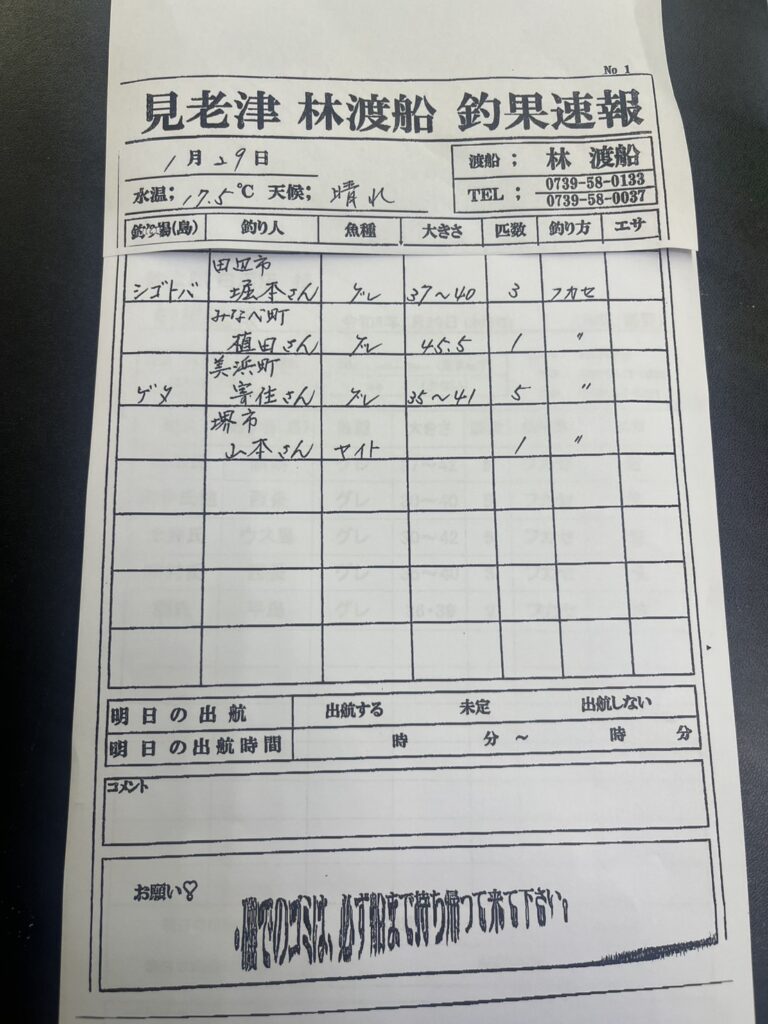 No 1
見老津 林渡船 釣果速報
1月29日
渡船; 林 渡船
水温; 17.5℃ 天候; 晴れ
TEL; 0739-58-0133
0739-58-0037
(島) 釣り人 魚種 大きさ 匹数 釣り方 エサ
田辺市
シゴトバ 堀本さん グレ 37〜40 3 フカセ
みなべ町
植田さん グレ 45.5 1 〃
美浜町
ゲタ 寄住さん グレ 35〜41 5 〃
堺市
山本さん ヤイト 1 〃
明日の出航 出航する 未定 出航しない
明日の出航時間 時 分 〜 時 分
コメント
お願い♡
・磯でのゴミは、必ず船まで持ち帰って来て下さい。